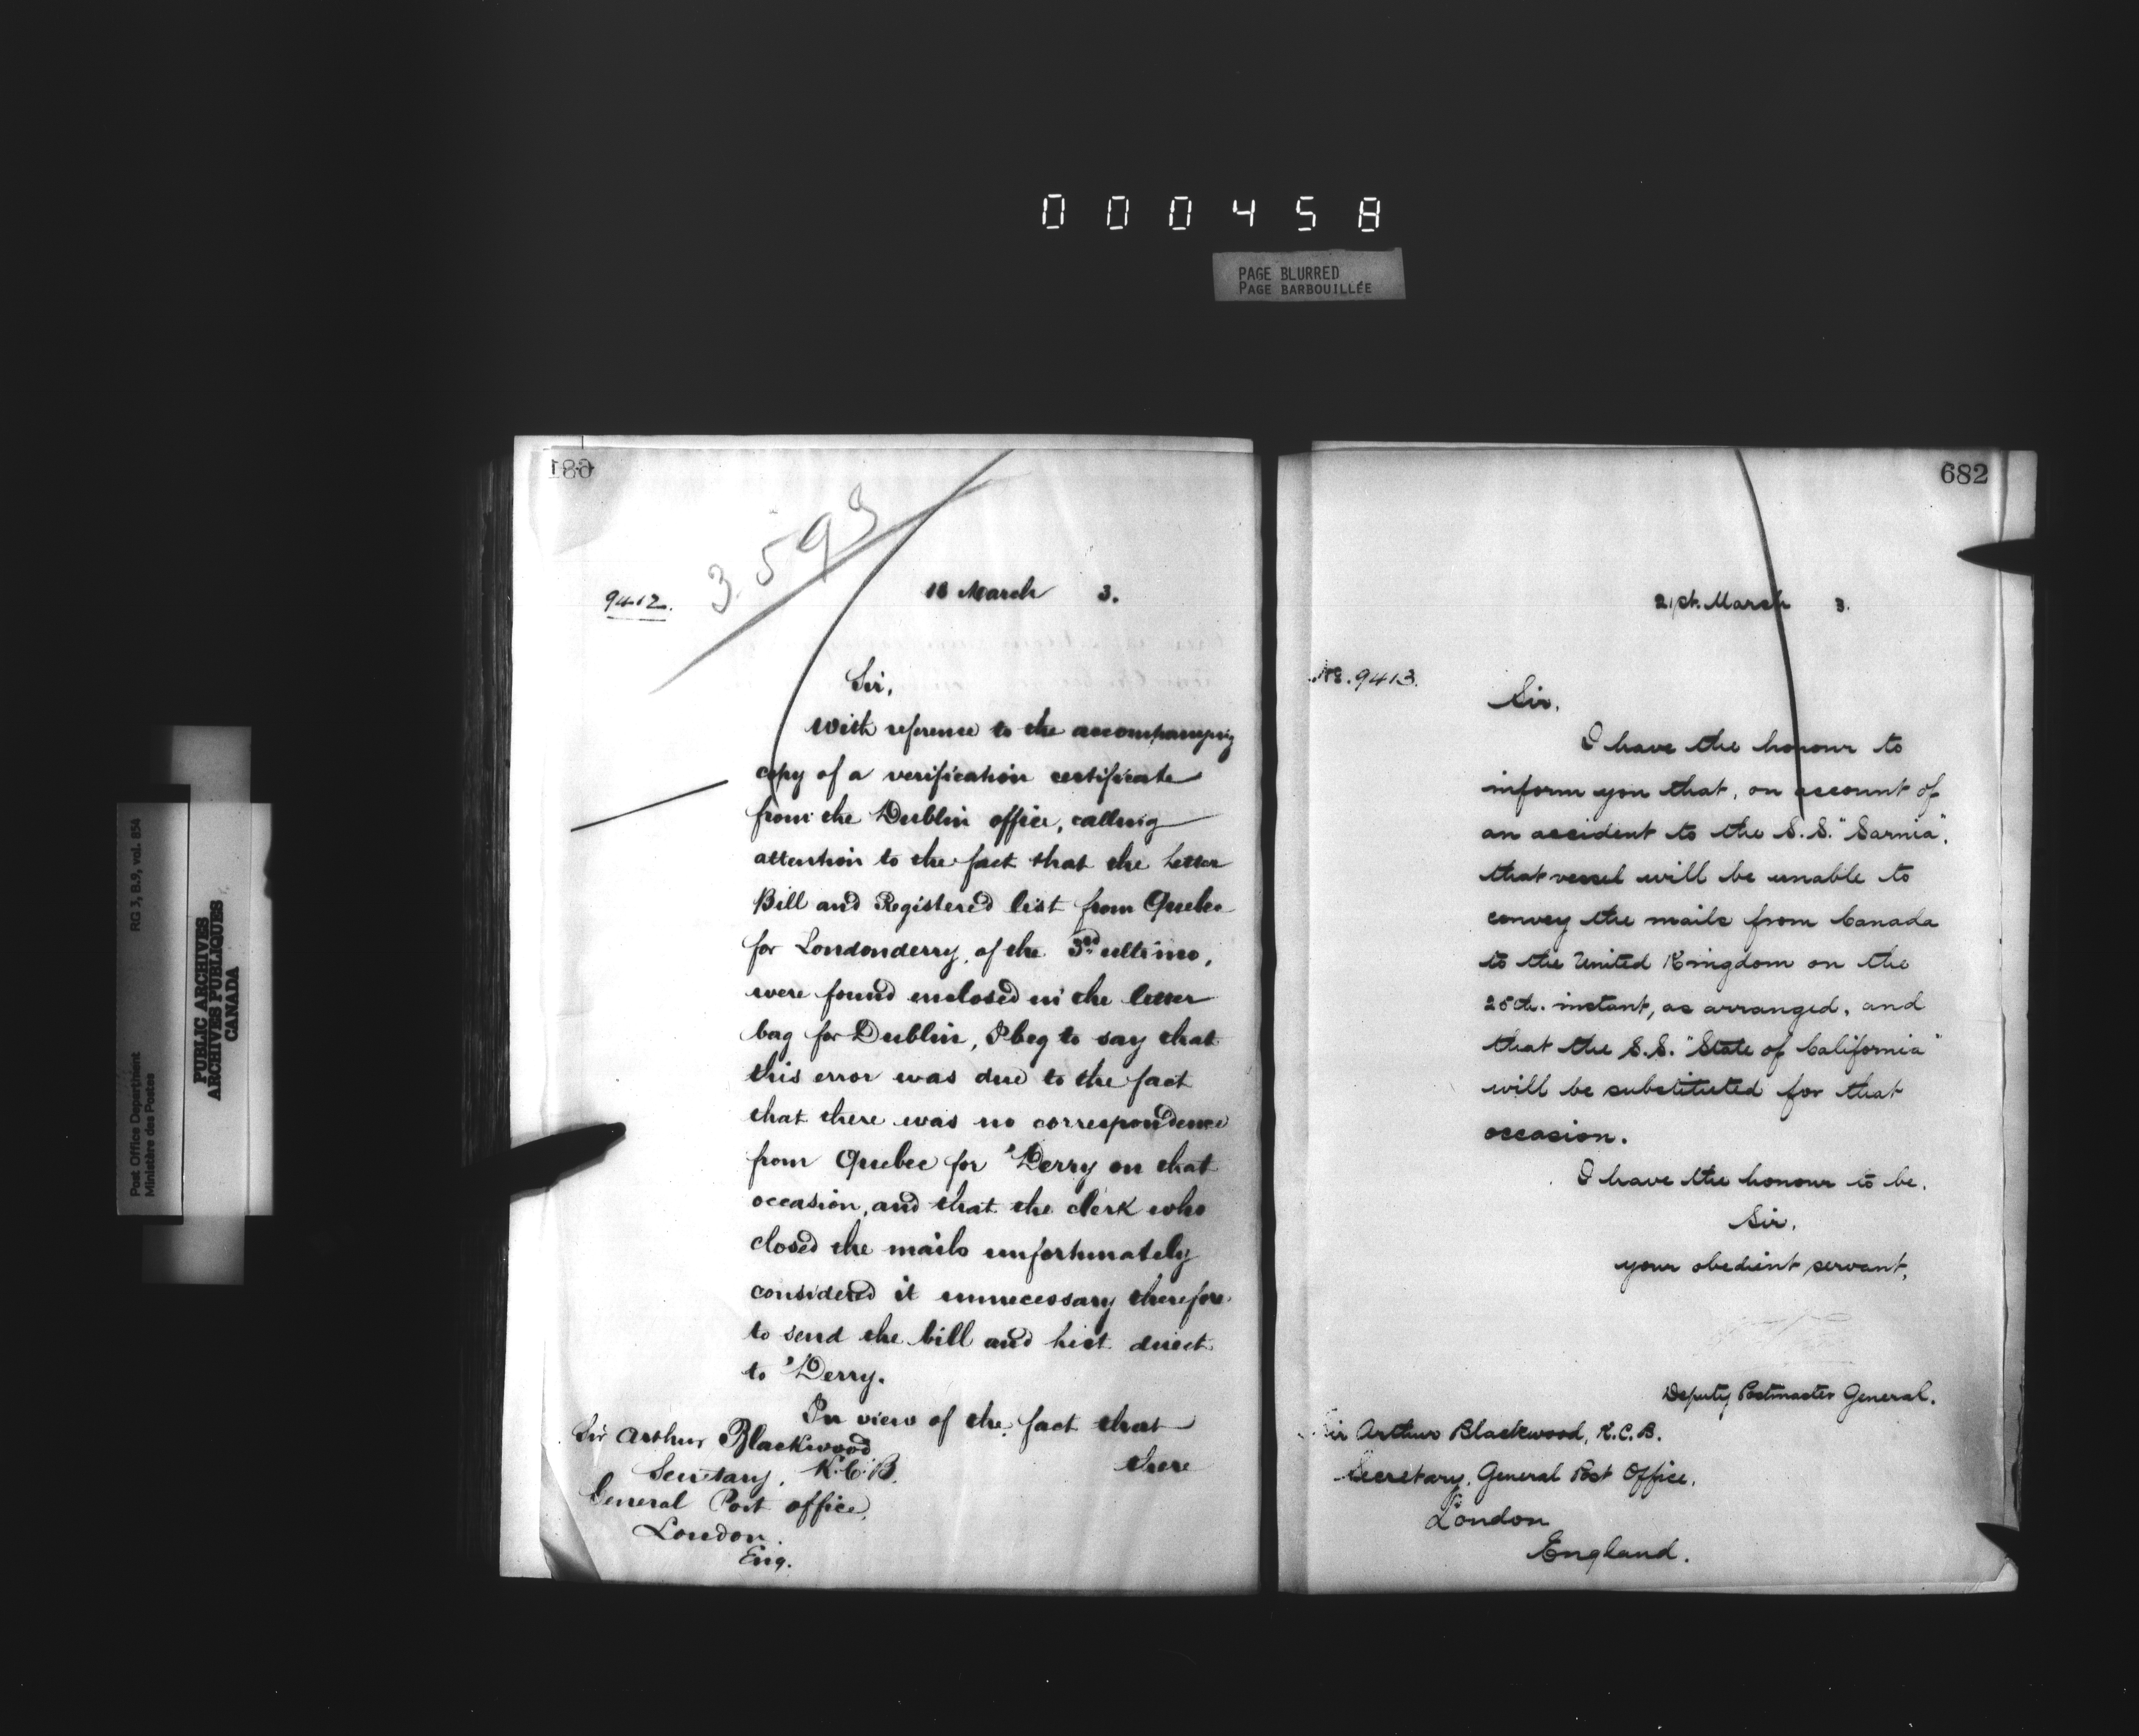 000458
PAGE BLURRED
PAGE BARBOUILLÉE
Post Office Department
Ministère des Postes
RG 3, B.9, vol. 854
PUBLIC ARCHIVES
ARCHIVES PUBLIQUES
CANADA
681
3593
9412.
18 March 3.
Sir,
With reference to the accompanying
copy of a verification certificate
from the Dublin office, calling
attention to the fact that the Letter
Bill and Registered list from Quebec
for Londonderry, of the 3rd ultimo,
were found enclosed in the letter
bag for Dublin, I beg to say that
this error was due to the fact
that there was no correspondence
from Quebec for 'Derry on that
occasion, and that the clerk who
closed the mails unfortunately
considered it unnecessary therefore
to send the bill and list direct
to 'Derry.
In view of the fact that
there
Sir Arthur Blackwood
Secretary, K.C.B.
General Post office,
London.
Eng.
682
21st. March 3.
No. 9413.
Sir,
I have the honour to
inform you that, on account of
an accident to the S.S. "Sarnia",
that vessel will be unable to
convey the mails from Canada
to the United Kingdom on the
25th. instant, as arranged, and
that the S.S. "State of California"
will be substituted for that
occasion.
I have the honour to be,
Sir,
your obedient servant,
Deputy Postmaster General.
Sir Arthur Blackwood, K.C.B.
Secretary, General Post Office,
London
England.